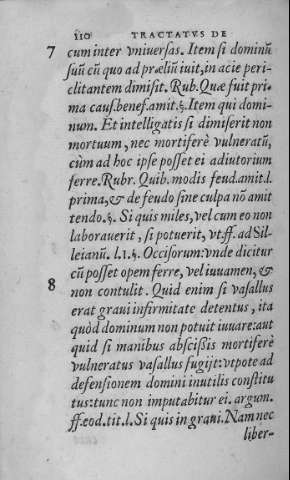 110 TRACTATVS DE
7 cum inter vniuersas. Item si dominũ
suũ cũ quo ad præliũ iuit, in acie peri-
clitantem dimisit. Rub. Quæ fuit pri
ma caus. benef. amit. §. Item qui domi-
num. Et intelligatis si dimiserit non
mortuum, nec mortiferè vulneratũ,
cùm ad hoc ipse posset ei adiutorium
ferre. Rubr. Quib. modis feud. amit. l.
prima, & de feudo sine culpa nõ amit
tendo. §. Si quis miles, vel cum eo non
laborauerit, si potuerit, vt ff. ad Sil-
leianũ. l. 1. §. Occisorum: vnde dicitur
cũ posset opem ferre, vel iuuamen, &
8 non contulit. Quid enim si vasallus
erat graui infirmitate detentus, ita
quòd dominum non potuit iuuare: aut
quid si manibus abscißis mortiferè
vulneratus vasallus fugijt: vtpote ad
defensionem domini inutilis constitu
tus: tunc non imputabitur ei. argum.
ff. eod. tit. l. Si quis in graui. Nam nec
liber-